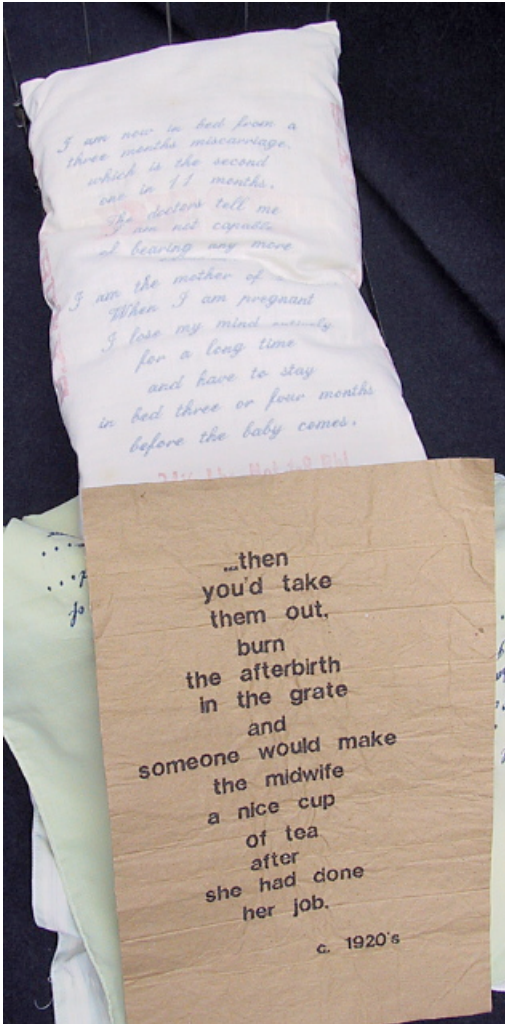 I am now in bed from a
three months miscarriage,
which is the second
one in 11 months.
The doctors tell me
I am not capable
of bearing any more
I am the mother of
When I am pregnant
I lose my mind
for a long time
and have to stay
in bed three or four months
before the baby comes.
...then
you'd take
them out,
burn
the afterbirth
in the grate
and
someone would make
the midwife
a nice cup
of tea
after
she had done
her job.
c. 1920's